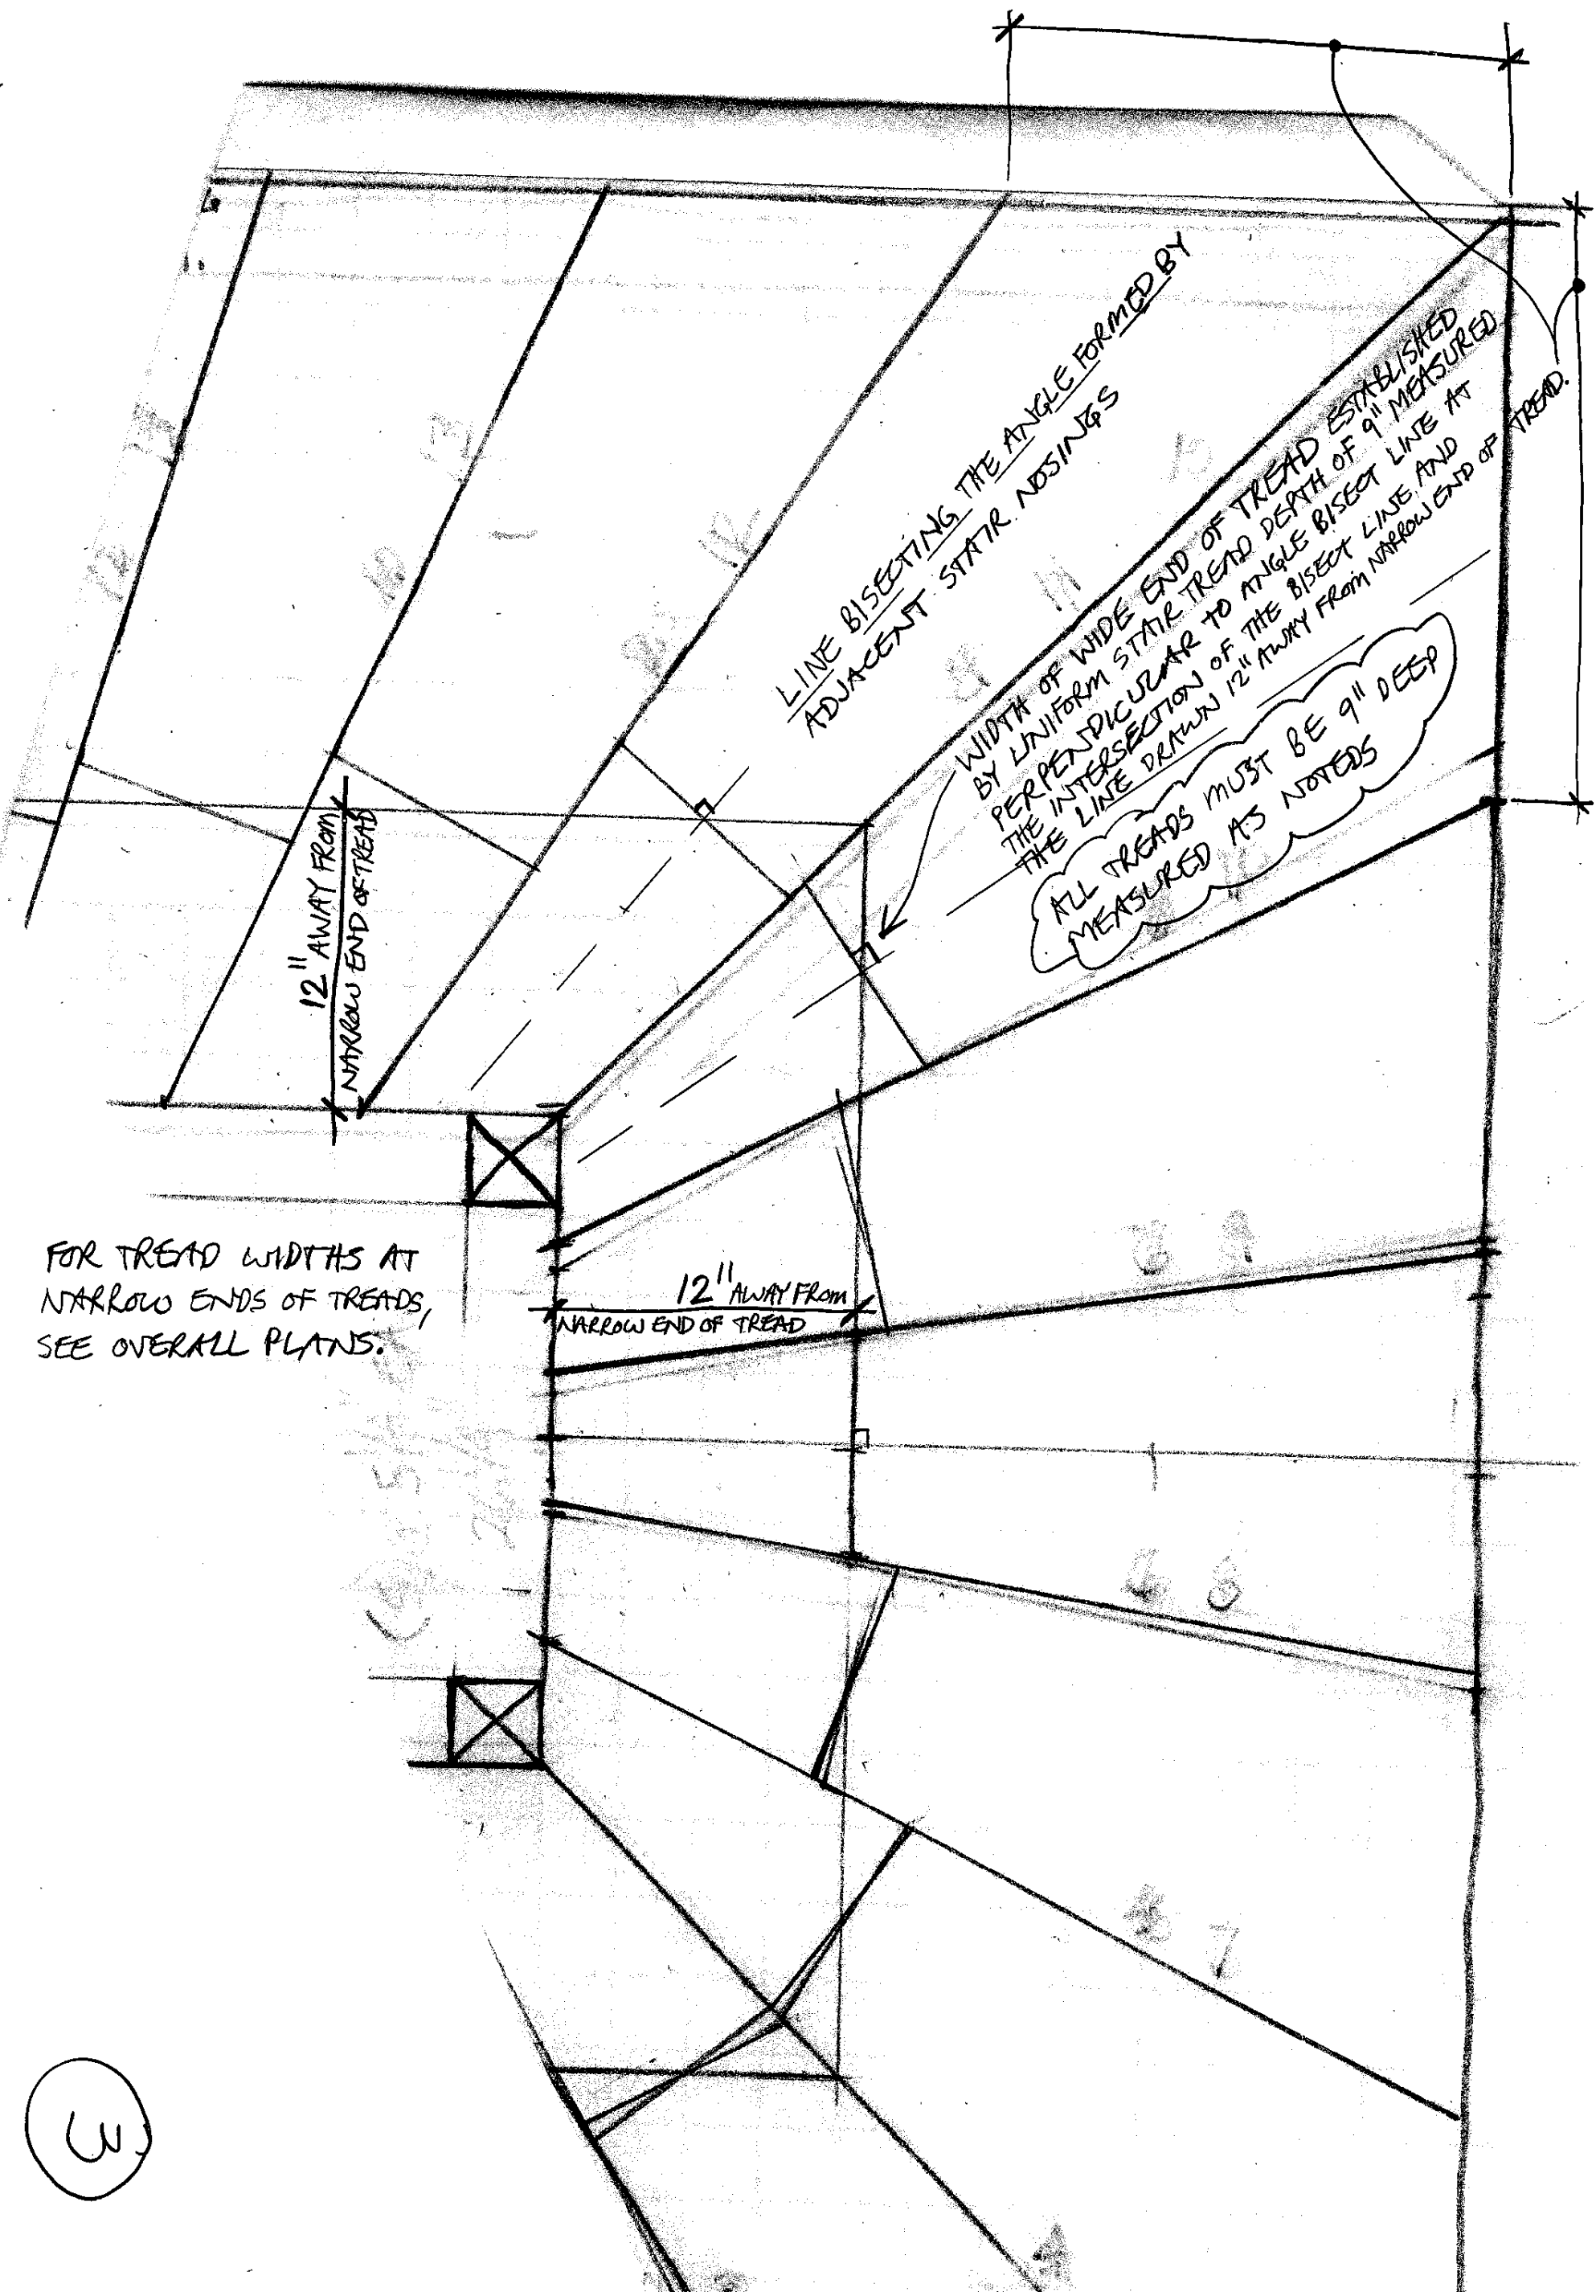 LINE BISECTING THE ANGLE FORMED BY
ADJACENT STAIR NOSINGS
WIDTH OF WIDE END OF TREAD ESTABLISHED
BY UNIFORM STAIR TREAD DEPTH OF 9" MEASURED
PERPENDICULAR TO ANGLE BISECT LINE AT
THE INTERSECTION OF THE BISECT LINE AND
THE LINE DRAWN 12" AWAY FROM NARROW END OF TREAD.
ALL TREADS MUST BE 9" DEEP
MEASURED AS NOTEDS
12" AWAY FROM
NARROW END OF TREAD
FOR TREAD WIDTHS AT
NARROW ENDS OF TREADS,
SEE OVERALL PLANS.
12" AWAY FROM
NARROW END OF TREAD
13
12
11
8 9
6
7
3